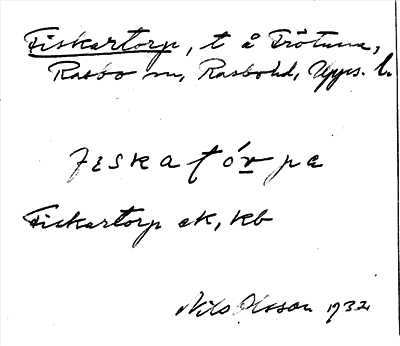 Fiskartorp, t å Frötuna,
Rasbo sn, Rasbohd, Upps. l.
fɪskatórpa
Fiskartorp ek, kb
Nils Olsson 1932